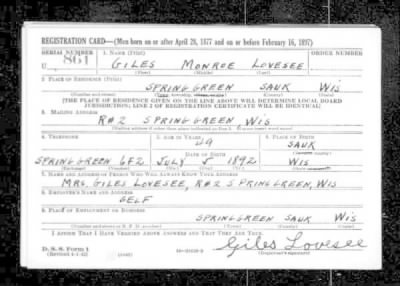 REGISTRATION CARD—(Men born on or after April 28, 1877 and on or before February 16, 1897)
SERIAL NUMBER 1. NAME (Print) ORDER NUMBER
U 861 GILES MONROE LOVESEE
(First) (Middle) (Last)
2. PLACE OF RESIDENCE (Print)
SPRING GREEN SAUK WIS
(Number and street) (Town, township, village, or city) (County) (State)
[THE PLACE OF RESIDENCE GIVEN ON THE LINE ABOVE WILL DETERMINE LOCAL BOARD
JURISDICTION; LINE 2 OF REGISTRATION CERTIFICATE WILL BE IDENTICAL]
3. MAILING ADDRESS
R#2 SPRING GREEN, WIS
[Mailing address if other than place indicated on line 2. If same insert word same]
4. TELEPHONE 5. AGE IN YEARS 6. PLACE OF BIRTH
49 SAUK
DATE OF BIRTH (Town or county)
SPRING GREEN 6F2 JULY 5 1892 WIS
(Exchange) (Number) (Mo.) (Day) (Yr.) (State or country)
7. NAME AND ADDRESS OF PERSON WHO WILL ALWAYS KNOW YOUR ADDRESS
MRS. GILES LOVESEE, R#2 SPRING GREEN, WIS
8. EMPLOYER'S NAME AND ADDRESS
SELF
9. PLACE OF EMPLOYMENT OR BUSINESS
SPRING GREEN SAUK WIS
(Number and street or R. F. D. number) (Town) (County) (State)
I AFFIRM THAT I HAVE VERIFIED ABOVE ANSWERS AND THAT THEY ARE TRUE.
D. S. S. Form 1
(Revised 4-1-42) (over) Giles Lovesee
(Registrant's signature)